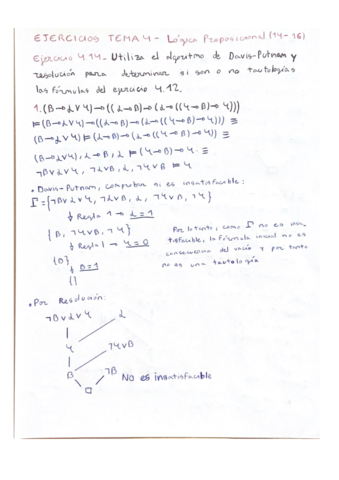 EJERCICIOS TEMA 4 - Lógica Proposicional (14-16)
Ejercicio 4.14.- Utiliza el algoritmo de Davis-Putnam y
resolución para determinar si son o no tautologías
las fórmulas del ejercicio 4.12.
1. (B→α∨φ)→((α→B)→(α→((φ→B)→φ)))
⊨(B→α∨φ)→((α→B)→(α→((φ→B)→φ))) ≡
(B→α∨φ)⊨(α→B)→(α→((φ→B)→φ)) ≡
(B→α∨φ), α→B, α ⊨ (φ→B)→φ ≡
¬B∨α∨φ, ¬α∨B, α, ¬φ∨B ⊨ φ
• Davis-Putnam, comprobar si es insatisfacible:
Γ={¬B∨α∨φ, ¬α∨B, α, ¬φ∨B, ¬φ}
↓ Regla 1 → α=1
{B, ¬φ∨B, ¬φ}
↓ Regla 1 → φ=0
{B}
↓ B=1
{}
Por lo tanto, como Γ no es insa-
tisfacible, la fórmula inicial no es
consecuencia del vacío y por tanto
no es una tautología
• Por Resolución:
¬B∨α∨φ α
φ ¬φ∨B
B ¬B
□
No es insatisfacible